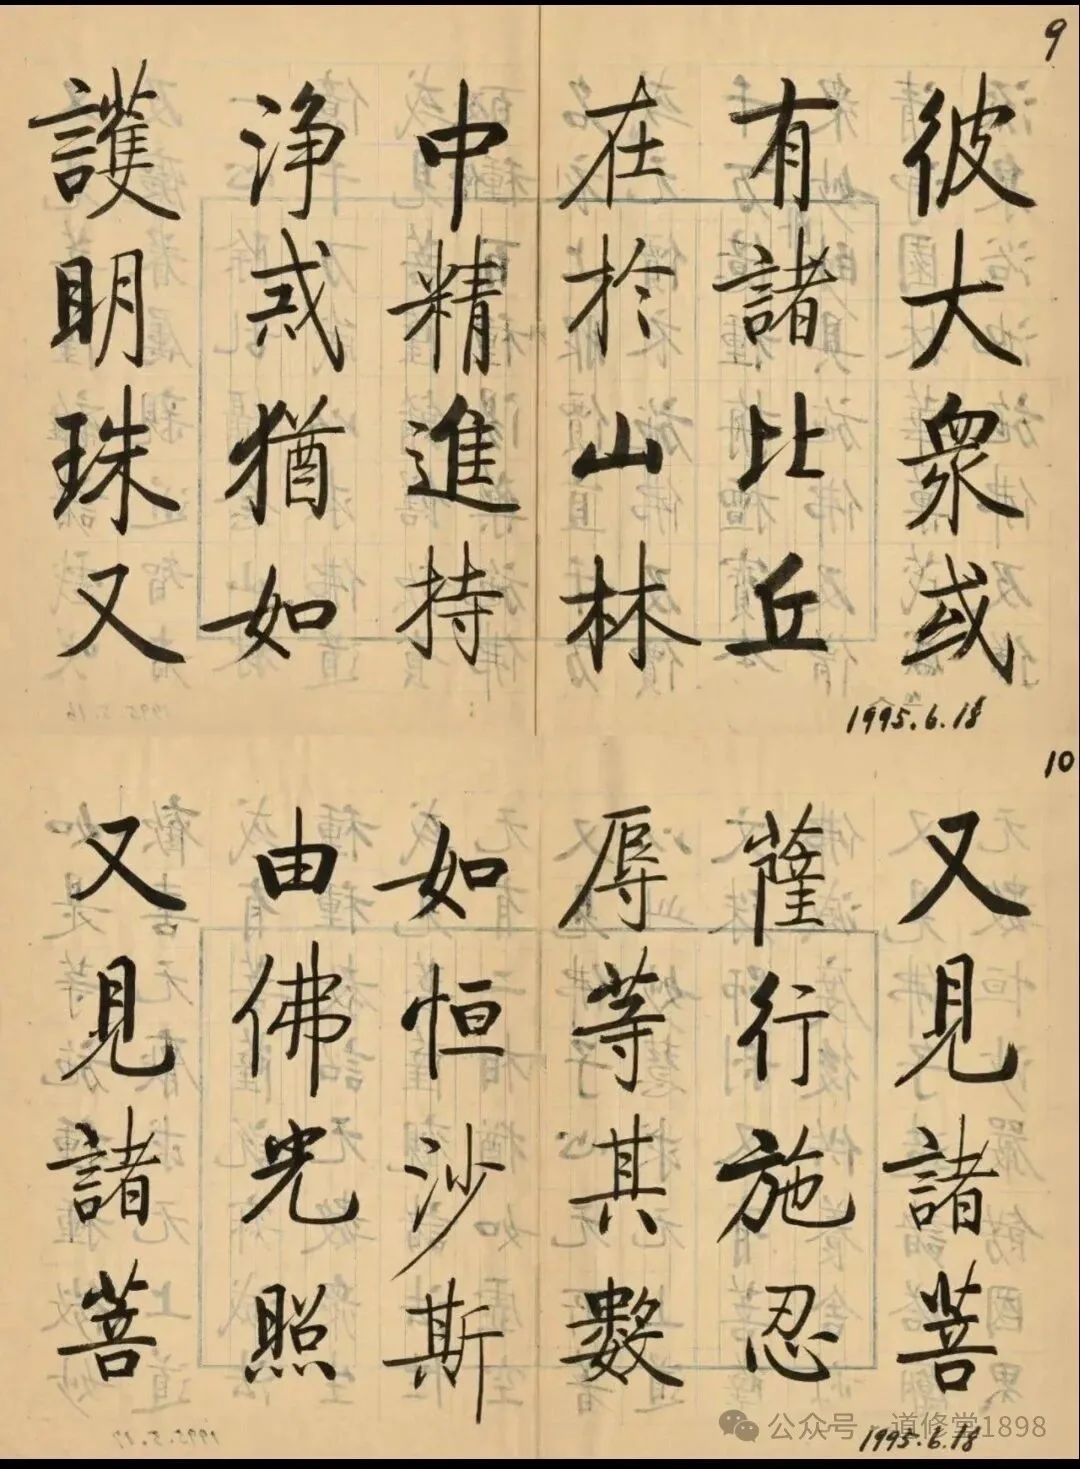 9
彼大衆或
有諸比丘
在於山林
中精進持
浄戒猶如
護明珠又
1995.6.18
10
又見諸菩
薩行施忍
辱等其數
如恒沙斯
由佛光照
又見諸菩
1995.6.18
公众号·道修堂1898